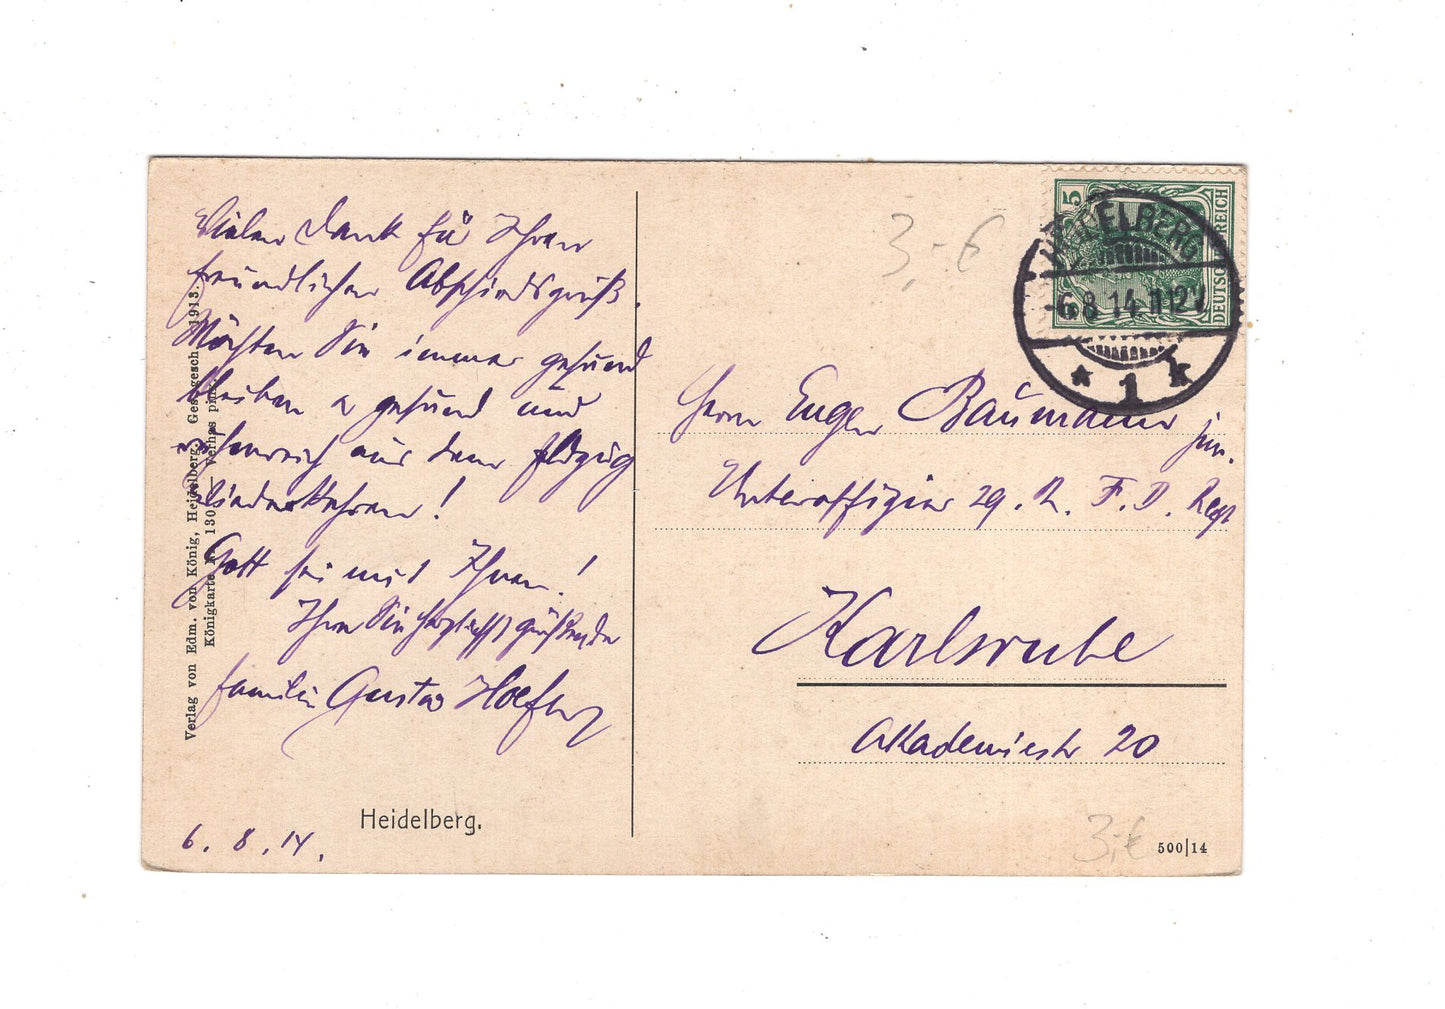 Vielen Dank für Ihren
freundlichen Abschiedsgruß.
Möchten Sie immer gesund
bleiben u gesund und
aus dem Feldzug
wiederkehren!
Gott sei mit Ihnen!
Ihre Sie herzlichst grüßende
Familie Gustav
6. 8. 14.
Heidelberg.
Verlag von Edm. von König, Heidelberg. Ges. gesch. 1913.
Königkarte Nr. 130
3,- €
5
DEUTSCHES REICH
HEIDELBERG
-6.8.14.11-12V
* 1 k
Herrn Eugen Baumann jun.
Unteroffizier 29. R. F. D. Regt
Karlsruhe
Akademiestr 20
3,- €
500|14